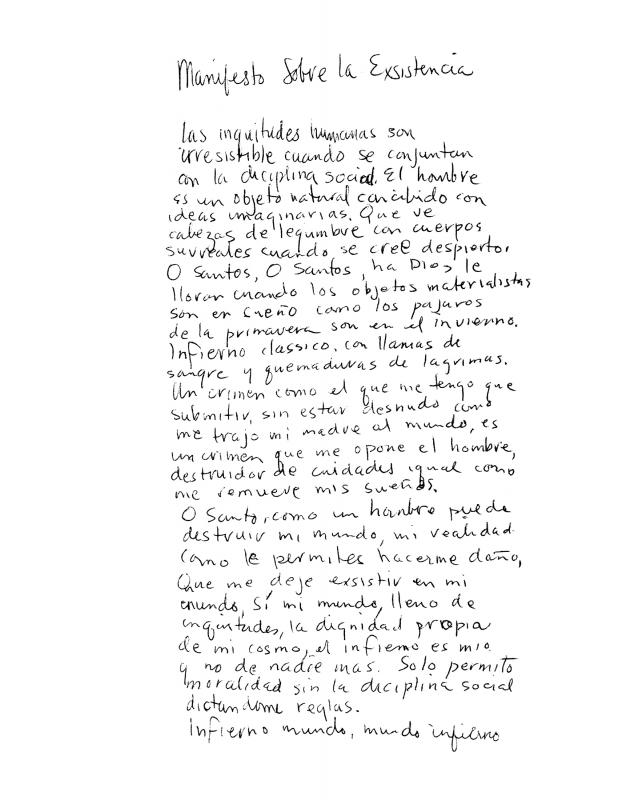 Manifesto Sobre la Exsistencia
Las inquitudes humanas son
irresistible cuando se conjuntan
con la diciplina social. El hombre
es un objeto natural concibido con
ideas imaginarias. Que ve
cabezas de legumbre con cuerpos
surreales cuando se cree despierto.
O Santos, O Santos, ha Dios le
lloran cuando los objetos materialistas
son en sueño como los pajaros
de la primavera son en el invierno.
Infierno classico, con llamas de
sangre y quemaduras de lagrimas.
Un crimen como el que me tengo que
submitir, sin estar desnudo como
me trajo mi madre al mundo, es
un crimen que me opone el hombre,
destruidor de cuidades igual como
me remueve mis sueños.
O Santo, como un hombre puede
destruir mi mundo, mi realidad
Como le permites hacerme daño,
Que me deje exsistir en mi
mundo, Sí mi mundo, lleno de
inquitudes, la dignidad propia
de mi cosmo, el infierno es mio
y no de nadie mas. Solo permito
moralidad sin la diciplina social
dictandome reglas.
Infierno mundo, mundo infierno